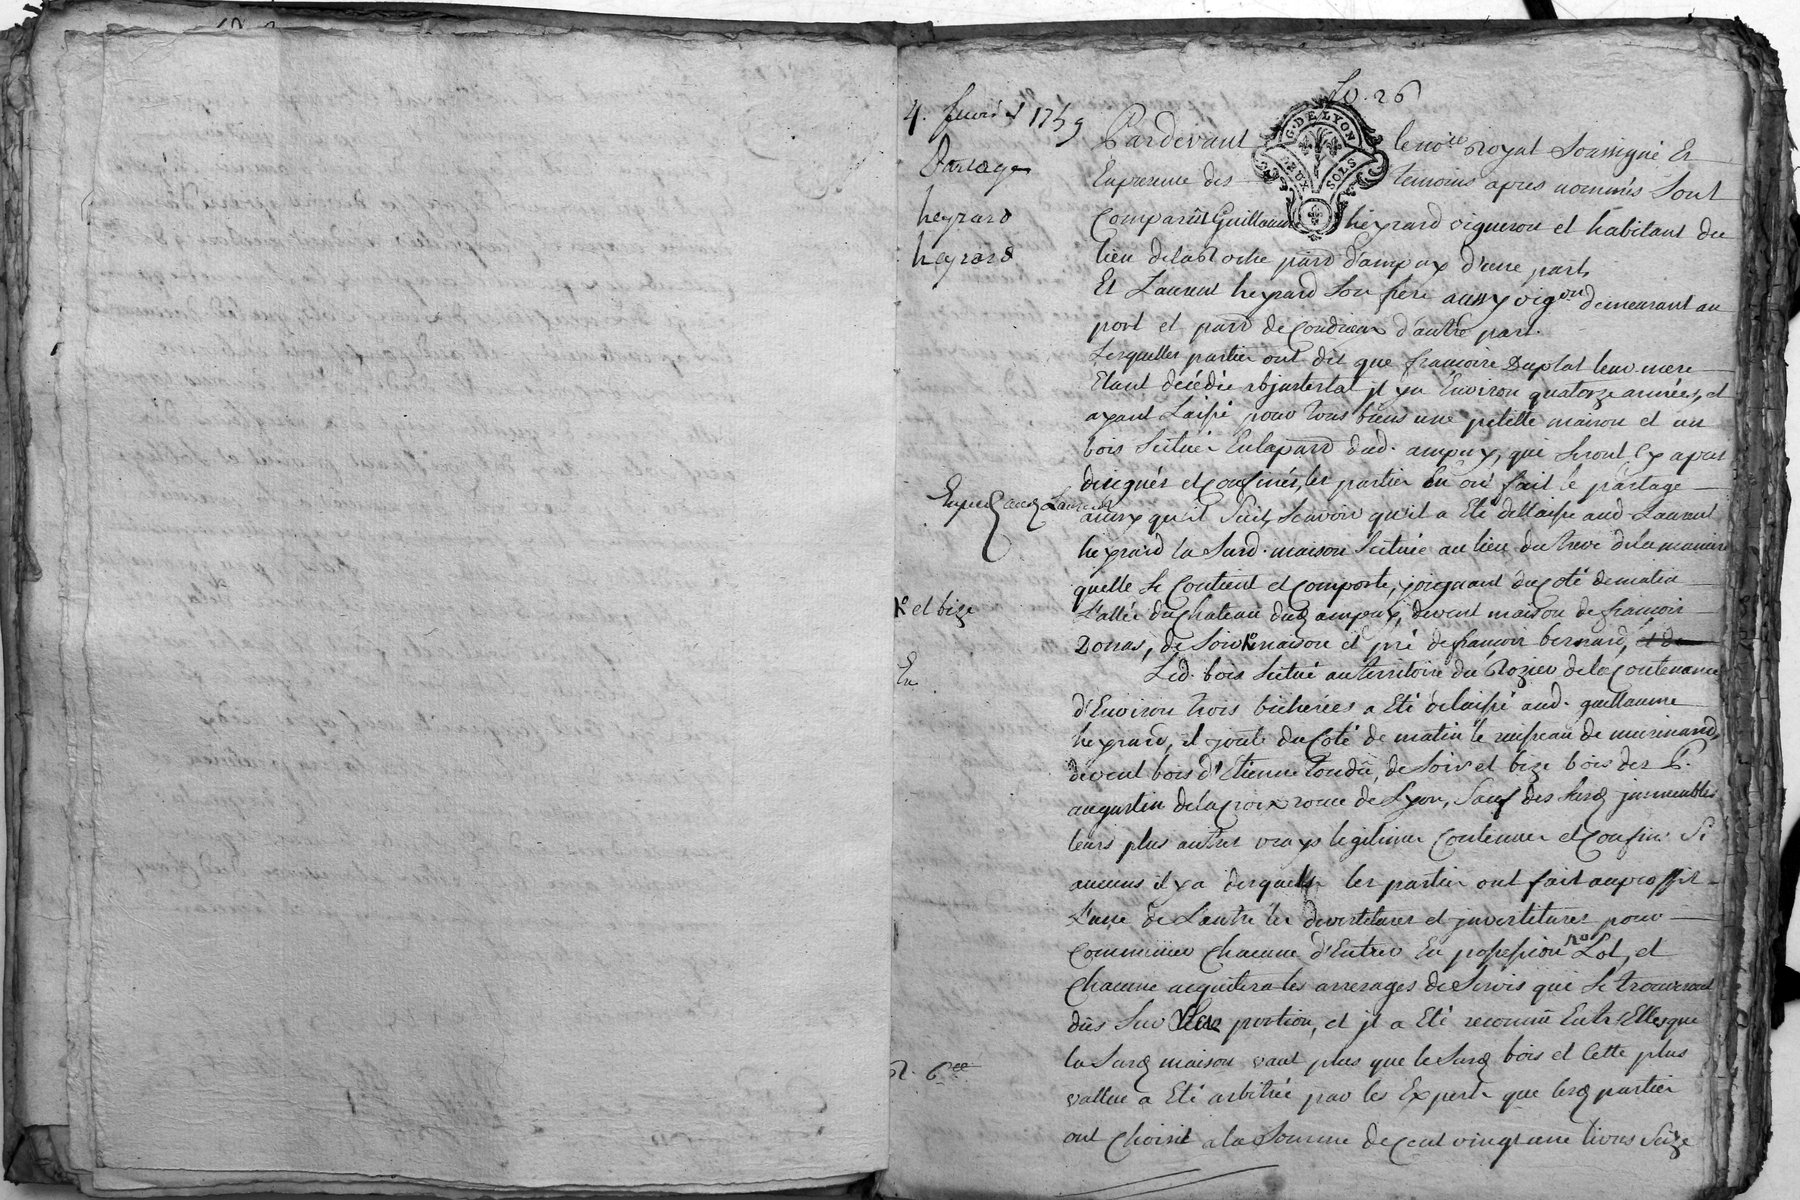 fo. 26
4. fevrier 1759
Partage
heyrard
heyrard
G. DE LYON
DEUX SOLS
Pardevant le no.re royal soussigné Et
En presence des temoins apres nommés sont
Comparüt Guillaume heyrard vigneron et habitant du
lieu delaroche parr d'ampuy d'une part,
Et Laurent heyrard son frere aussy vig.on demeurant au
port et parr de Condrieu d'autre part.
Lesquelles parties ont dit que francoise Duplat leur mere
Etant décédée abjntestat jl y a Environ quatorze années, et
ayant Laissé pour tous biens une petitte maison et un
bois scitués En laparr dud. ampuy, qui seront cy apres
désignés et confinés, les parties En ont fait le partage
ainsy qu'il suit, scavoir qu'il a Eté dellaissé aud Laurent
heyrard la susd. maison scituée au lieu du treve de la maniere
quelle se Contient et comporte, joignant du Coté de matin
L'allée du Chateau dud ampuy, de vent maison de francois
Donas, de soir maison et pré de francois bernard, et de
Led. bois scitué au territoire du Rozier de la Contenance
d'Environ trois bicherées a Eté délaissé aud. guillaume
heyrard, il joute du Coté de matin le ruisseau de murinand,
de vent bois d'Etienne , de soir et bize bois des P.
augustin de la Croix rousse de Lyon, sauf des susd jmmeubles
leurs plus autres vrays legitimes Contenues et Confins si
aucuns il y a desquels les parties ont fait au proffit
L'une de L'autre les devestitures et jnvestitures pour
Commencer Chacune d'Entrer En possession Lot, et
Chacune acquitera les arrerages de servis qui se trouveront
dûs sur portion, et jl a Eté reconnû Entr'Elles que
la susd maison vaut plus que le susd bois et Cette plus
vallue a Eté arbitrée par les Experts que lesd parties
ont Choisit a la somme de Cent vingt une livres seize
et bize
En